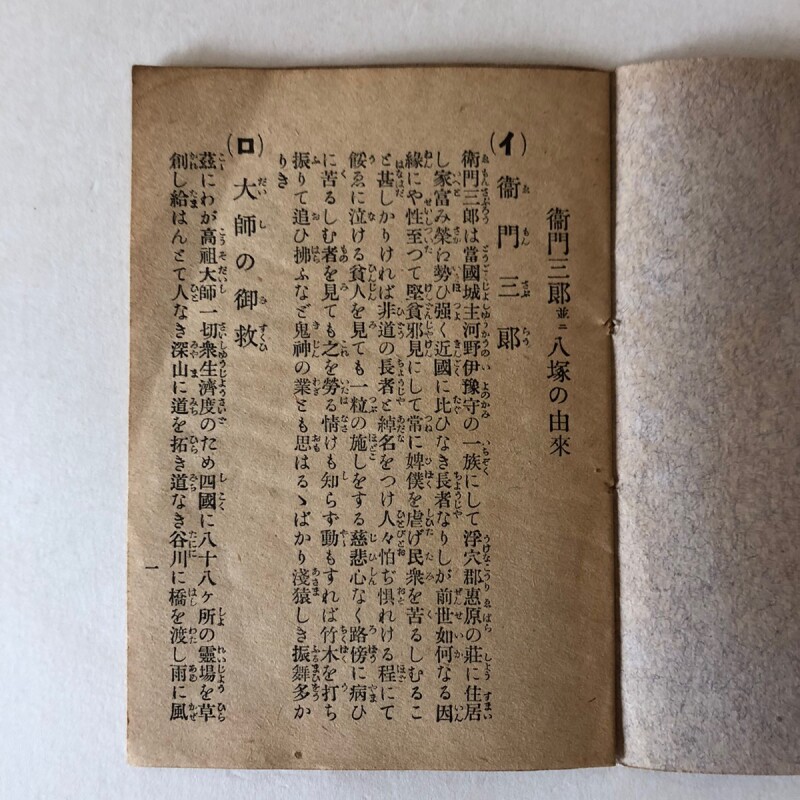 衞門三郎並ニ八塚の由來
(イ)衞門三郎
衛門三郎は當國城主河野伊豫守の一族にして浮穴郡惠原の莊に住居
し家富み榮わ勢ひ强く近國に比ひなき長者なりしが前世如何なる因
緣にや性至つて堅貧邪見にして常に婢僕を虐げ民衆を苦るしむるこ
と甚しかりければ非道の長者と綽名をつけ人々怕ぢ惧れける程にて
餒ゑに泣ける貧人を見ても一粒の施しをする慈悲心なく路傍に病ひ
に苦るしむ者を見ても之を勞る情けも知らず動もすれば竹木を打ち
振りて追ひ拂ふなど鬼神の業とも思はるゝばかり淺猿しき振舞多か
りき
(ロ)大師の御救
茲にわが高祖大師一切衆生濟度のため四國に八十八ヶ所の靈場を草
創し給はんとて人なき深山に道を拓き道なき谷川に橋を渡し雨に風
一